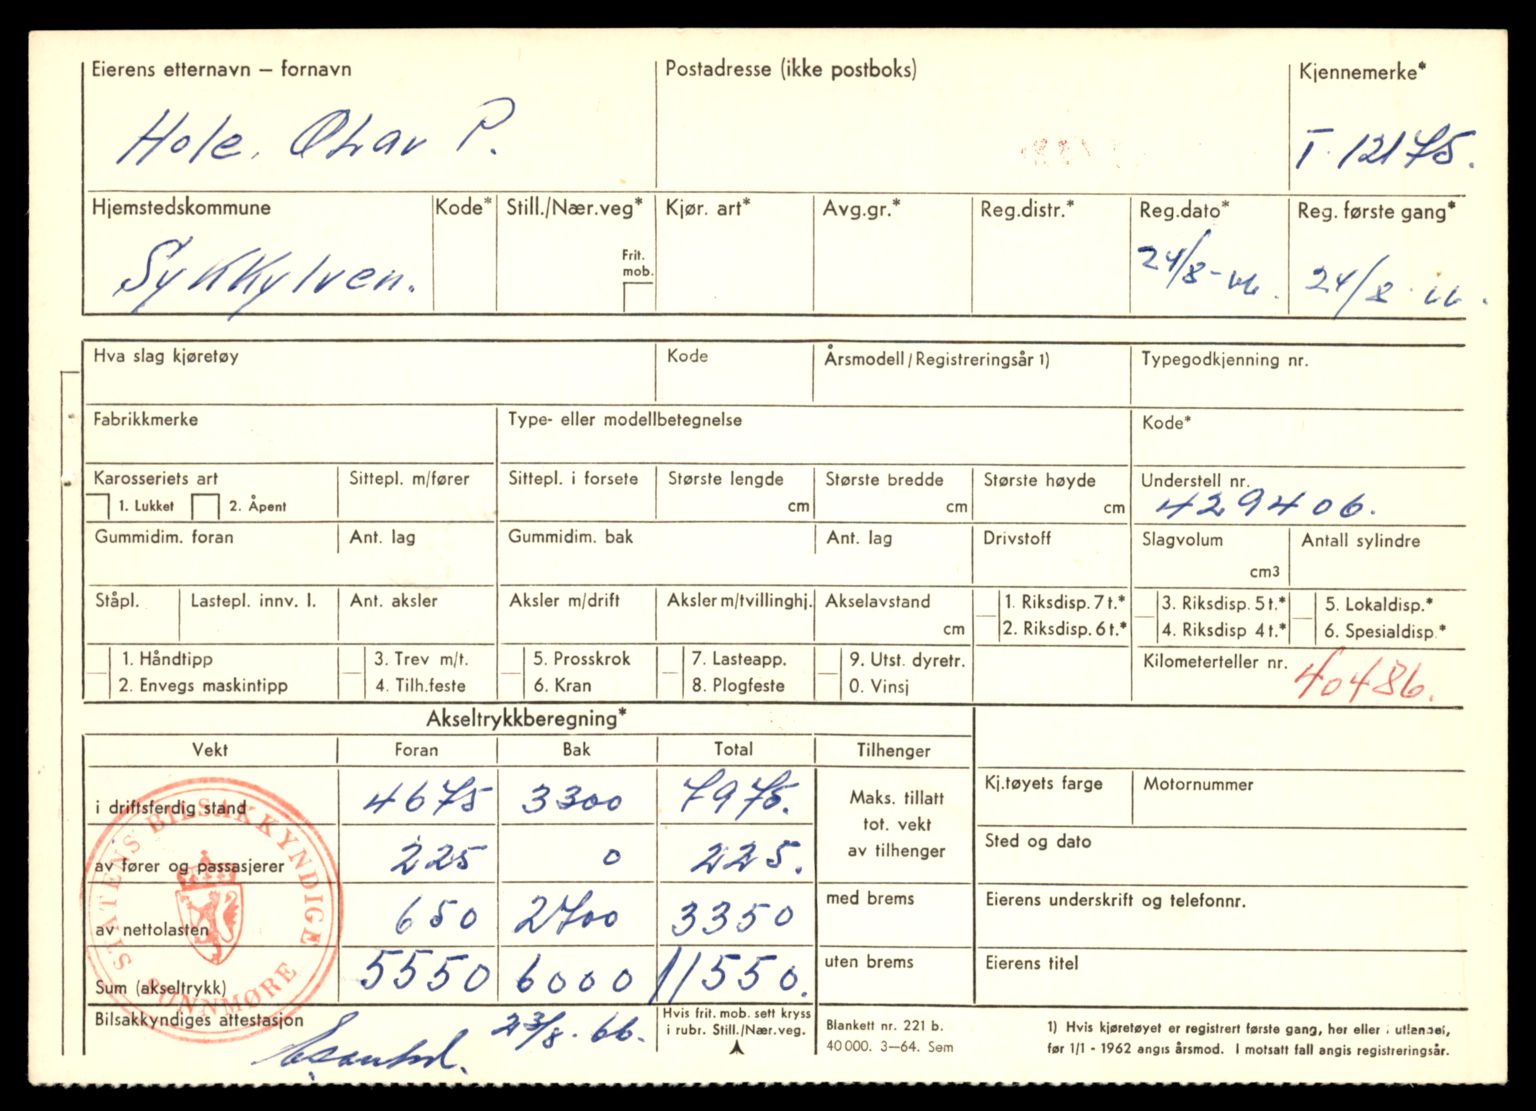 Eierens etternavn – fornavn Postadresse (ikke postboks) Kjennemerke*
Hole, Olav P. T. 12175.
Hjemstedskommune Kode* Still./Nær.veg* Kjør. art* Avg.gr.* Reg.distr.* Reg.dato* Reg. første gang*
Frit. mob.
Sykkylven. 24/8-66. 24/8.66.
Hva slag kjøretøy Kode Årsmodell/Registreringsår 1) Typegodkjenning nr.
Fabrikkmerke Type- eller modellbetegnelse Kode*
Karosseriets art Sittepl. m/fører Sittepl. i forsete Største lengde Største bredde Største høyde Understell nr.
1. Lukket 2. Åpent cm cm cm 429406.
Gummidim. foran Ant. lag Gummidim. bak Ant. lag Drivstoff Slagvolum Antall sylindre
cm3
Ståpl. Lastepl. innv. l. Ant. aksler Aksler m/drift Aksler m/tvillinghj. Akselavstand 1. Riksdisp. 7 t.* 3. Riksdisp. 5 t.* 5. Lokaldisp.*
cm 2. Riksdisp. 6 t.* 4. Riksdisp 4 t.* 6. Spesialdisp.*
1. Håndtipp 3. Trev m/t. 5. Prosskrok 7. Lasteapp. 9. Utst. dyretr. Kilometerteller nr.
2. Envegs maskintipp 4. Tilh.feste 6. Kran 8. Plogfeste 0. Vinsj 40486.
Akseltrykkberegning*
Vekt Foran Bak Total Tilhenger
i driftsferdig stand 4675 3300 7975. Maks. tillatt tot. vekt av tilhenger Kj.tøyets farge Motornummer
av fører og passasjerer 225 0 225. Sted og dato
av nettolasten 650 2700 3350 med brems Eierens underskrift og telefonnr.
Sum (akseltrykk) 5550 6000 11550. uten brems Eierens titel
STATENS BILSAKKYNDIGE
SUNNMØRE
Bilsakkyndiges attestasjon 23/8.66. Hvis frit. mob. sett kryss i rubr. Still./Nær.veg.
Blankett nr. 221 b.
40 000. 3–64. Sem
1) Hvis kjøretøyet er registrert første gang, her eller i utlandet,
før 1/1 - 1962 angis årsmod. I motsatt fall angis registreringsår.